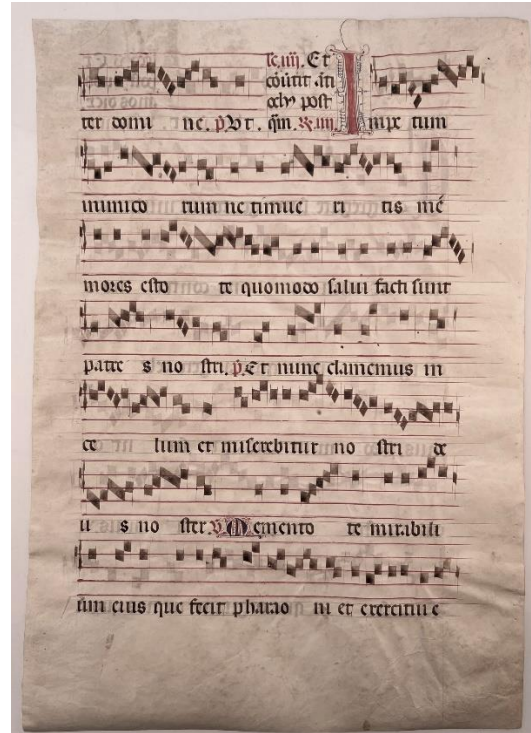 fe. iiij. Et
cōūtit āti
ochꝰ post
ter domi ne. p̄ Vt. q̄m. R. iiij. Impe tum
inimico rum ne timue ri tis me
mores esto te quomodo salui facti sunt
patre s no stri. p̄ Et nunc clamemus in
ce lum et miserebitur no stri de
u s no ster. V Memento te mirabili
um eius que fecit pharao ni et exercitui e